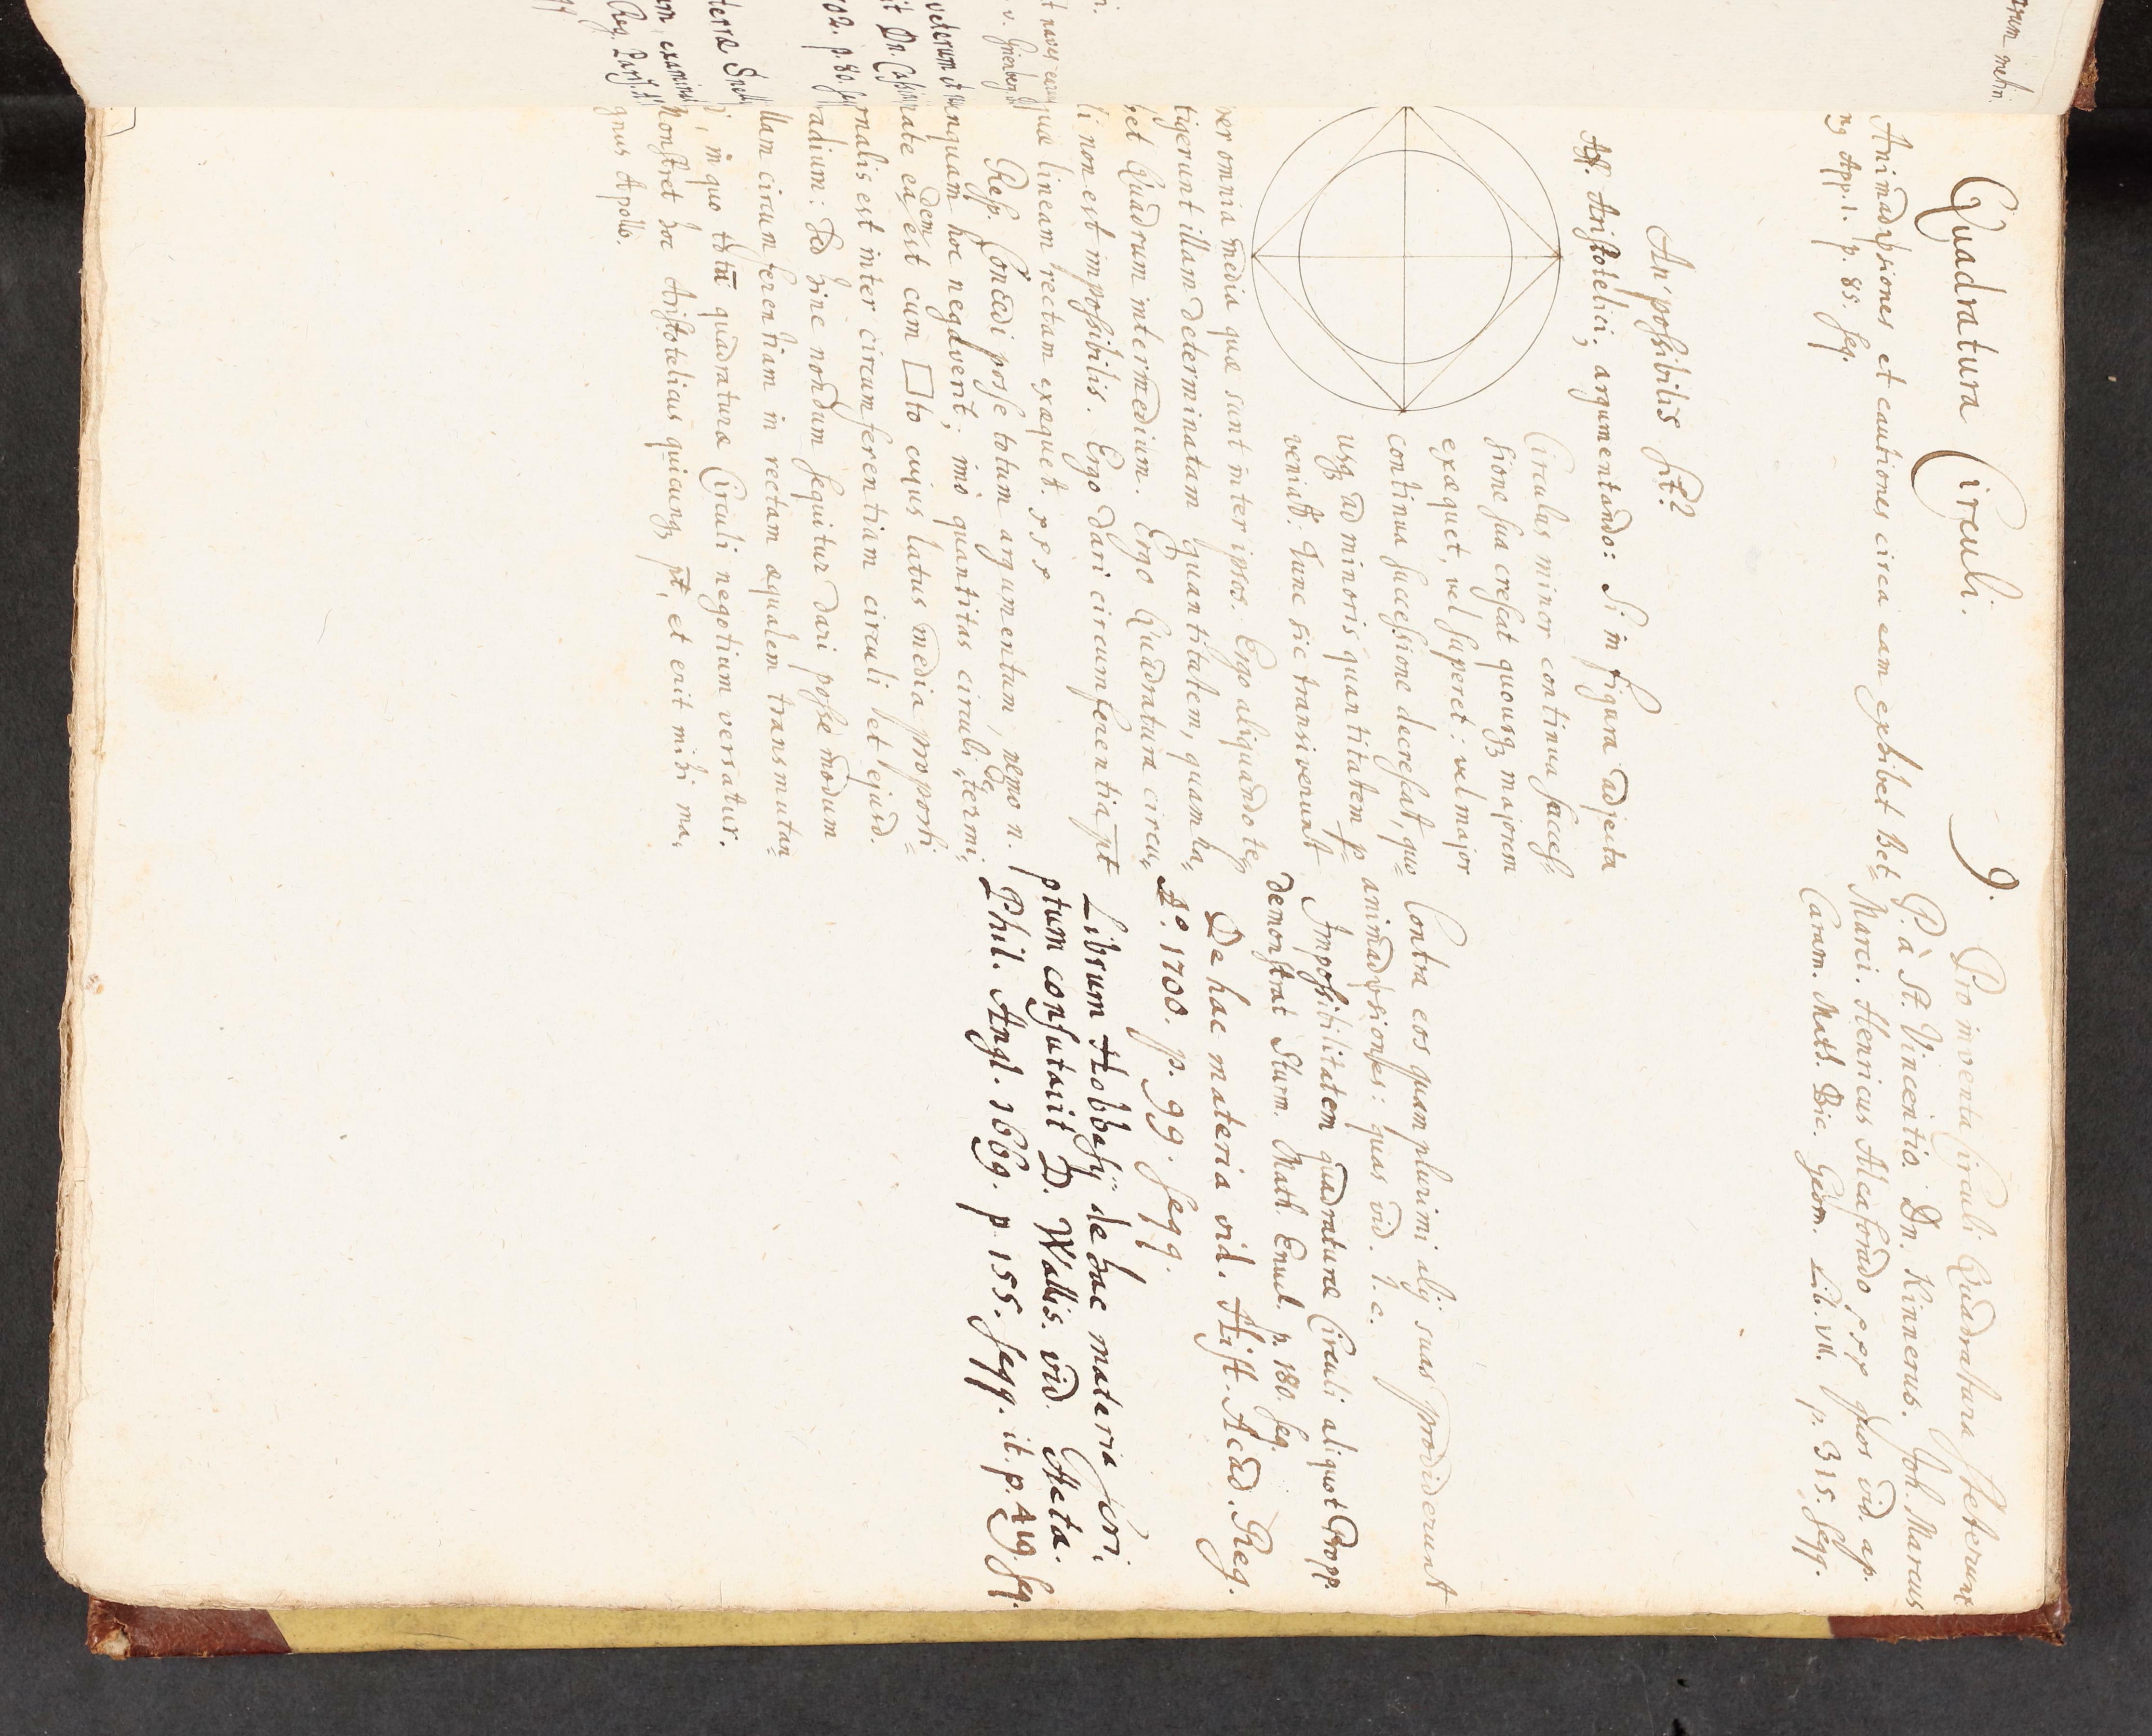 Quadratura Circuli.
9.
Animadversiones et cautiones circa eam exhibet Bet=
App. 1. p. 85. seq.
An possibilis sit?
Aff. Aristotelici, argumentando: Si in figura adjecta
Circulus minor continua succes=
sione sua crescat quousq3 majorem
exæquet, vel superet: vel major
continua successione decrescat, quo=
usq3 ad minoris quantitatem p=
veniat: Tunc sic transiverunt
per omnia media quæ sunt inter ipsos. Ergo aliquando te=
tigerunt illam determinatam quantitatem, quam ha=
bet Quadrum intermedium. Ergo Quadratura circu=
li non est impossibilis. Ergo dari circumferentia pt
quæ lineam rectam exæquet. ppp
Resp. Concedi posse totum argumentum, nemo n.
unquam hoc negaverit; imo quantitas circuli de termi=
nate eadem est cum □to cujus latus media proporti=
onalis est inter circumferentiam circuli et ejusd.
radium: Sed hinc nondum sequitur dari posse modum
illam circumferentiam in rectam æqualem transmutan=
di, in quo totum quadraturæ Circuli negotium versatur.
Monstret hoc Aristotelicus quicunq3 pt, et erit mihi ma=
gnus Apollo.
Pro inventa Circuli Quadratura steterunt
P. à St. Vincentio. Dn. Kinnerus. Joh. Marcus
Marci. Henricus Alcaforado ppp quos vid. ap.
Caram. Math. Bic. Geom. Lib. VII. p. 315. seqq.
Contra eos quam plurimi alij suas prodiderunt
animadversiones: quas vid. l. c.
Impossibilitatem quadraturæ Circuli aliquot Propp.
demonstrat Sturm. Math. Enucl. p. 180. seq.
De hac materia vid. Hist. Acad. Reg.
A°. 1700. p. 99. seqq.
Librum Hobbesij de hac materia scri=
ptum confutavit D. Wallis. vid. Acta.
Phil. Angl. 1669. p 155. seqq. it. p. 49. sq.